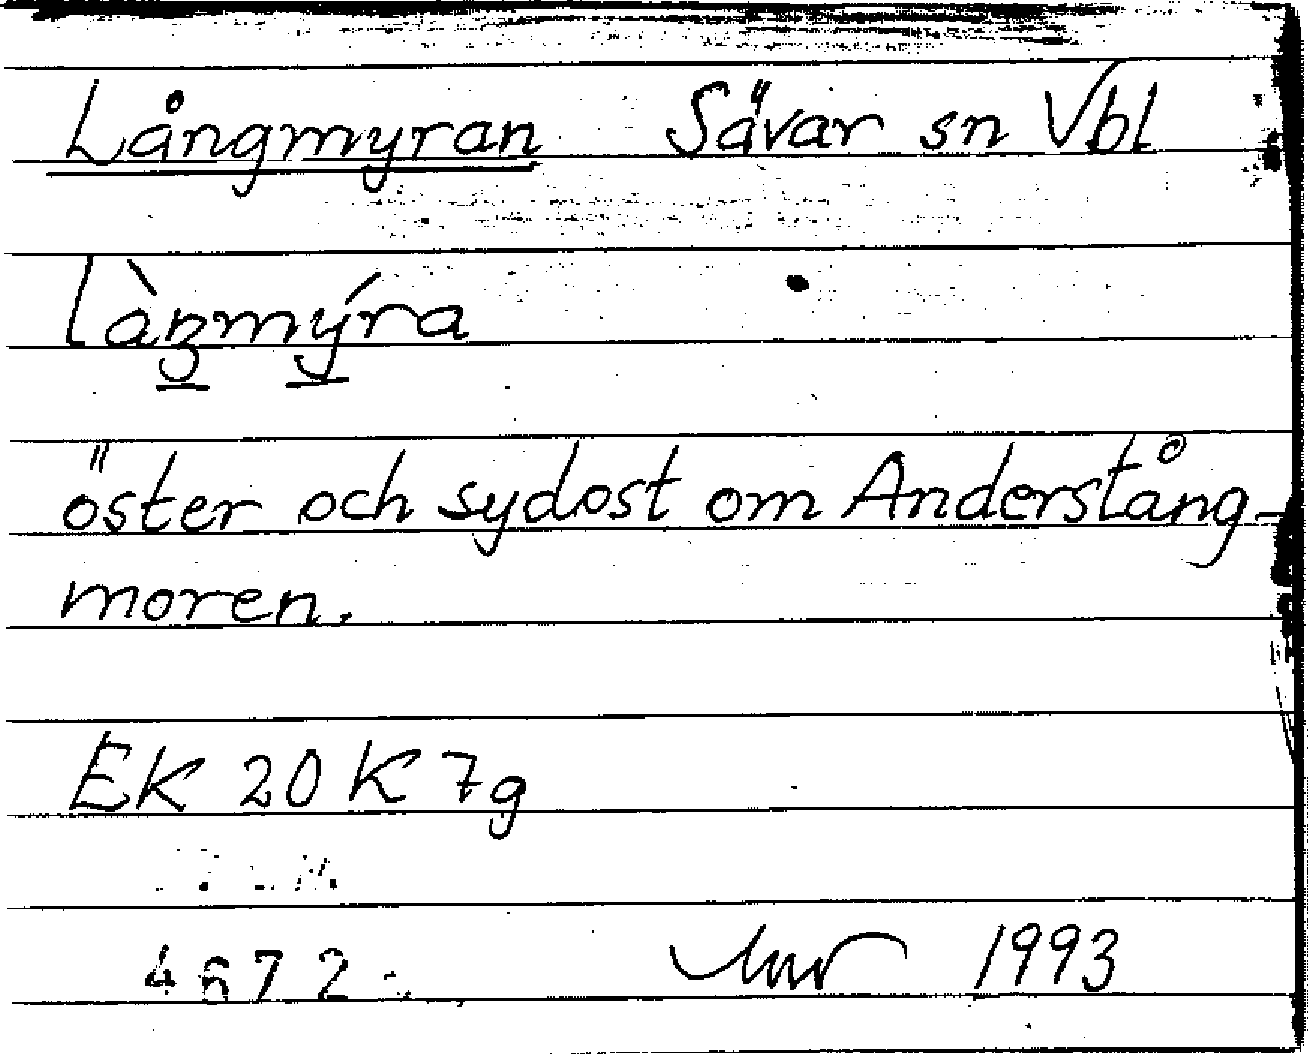 Långmyran Sävar sn Vbl
làŋmýra
öster och sydost om Anderstång-
moren.
EK 20 K 7g
4672
1993